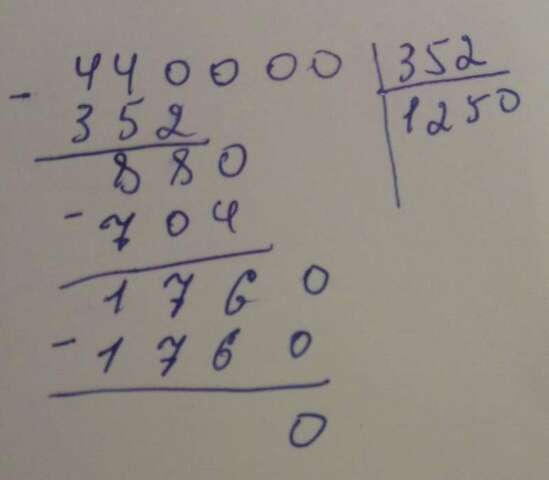 - 440000 352
352 1250
880
- 704
1760
- 1760
0